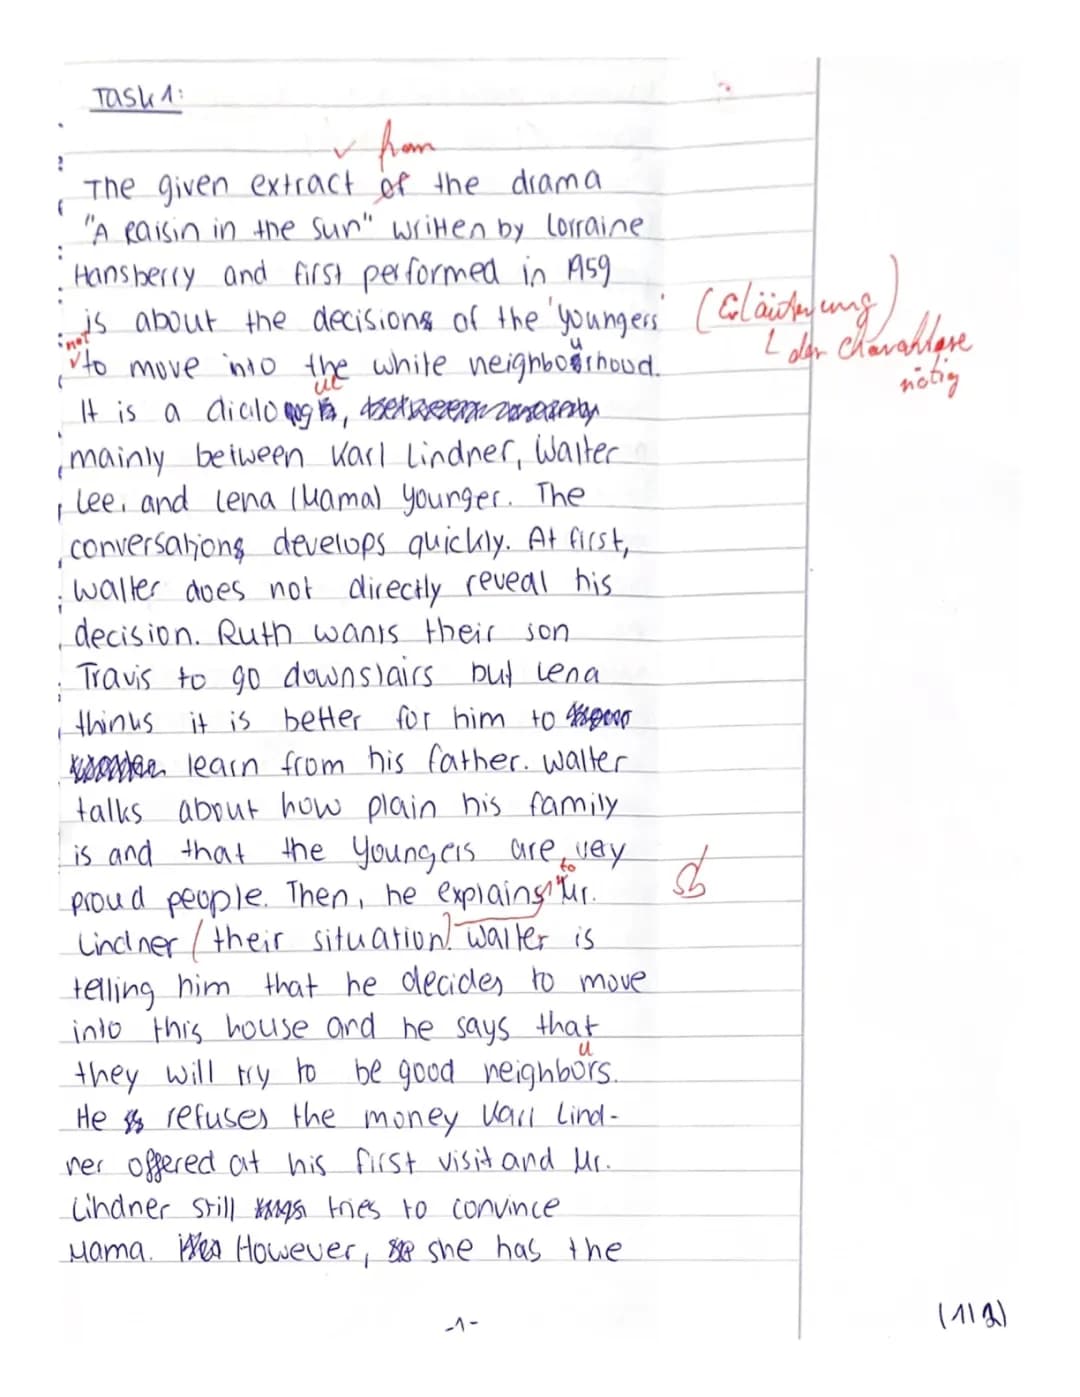 Task 1:
✓ from
The given extract of the drama
"A Raisin in the Sun" written by Lorraine
Hansberry and first performed in 1959
is about the decisions of the 'Youngers'
(Erläuterung)
der Charaktere
nötig
not
✓ to move into the white neighbourhood.
u
It is a dialogue,
ue
mainly between Karl Lindner, Walter
Lee, and Lena (Mama) Younger. The
conversations develops quickly. At first,
Walter does not directly reveal his
decision. Ruth wants their son
Travis to go downstairs but Lena
thinks it is better for him to
learn from his father. Walter
talks about how plain his family
is and that the Youngers are very
proud people. Then, he explains Mr.
to
Lindner (their situation). Walter is
telling him that he decides to move
into this house and he says that
they will try to be good neighbors.
u
He refuses the money Karl Lind-
ner offered at his first visit and Mr.
Lindner still tries to convince
Mama. However, she has the
-1-
(1/2)